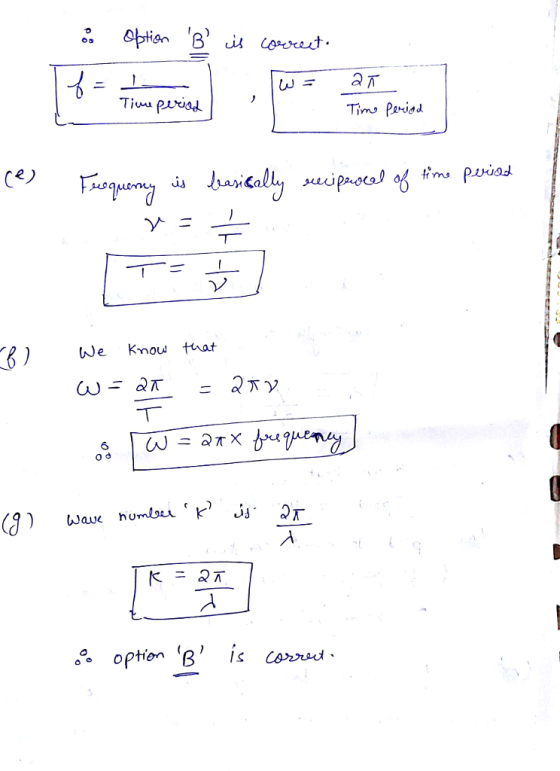 ∴ Option 'B' is correct.
f = 1 / Time period , ω = 2π / Time Period
(e) Frequency is basically reciprocal of time period
ν = 1 / T
T = 1 / ν
(f) We know that
ω = 2π / T = 2πν
∴ ω = 2π × frequency
(g) wave number 'K' is 2π / λ
K = 2π / λ
∴ option 'B' is correct.